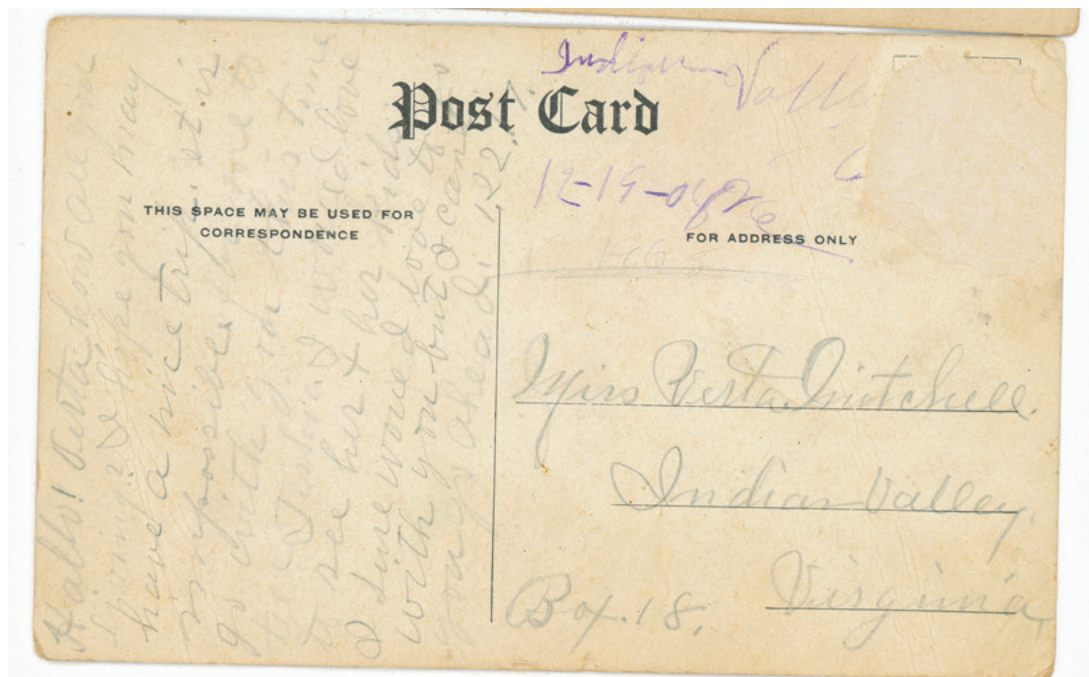 Post Card
Indian Valley
12-19-08
THIS SPACE MAY BE USED FOR
CORRESPONDENCE
FOR ADDRESS ONLY
Hallo! Verta how are you
I hope you may
have a nice trip. it is
impossible for me to
go with you this time
I would love
to see her & her
I sure would love to
with you but I can
Miss Verta Mitchell.
Indian Valley,
Virginia
Box. 18.